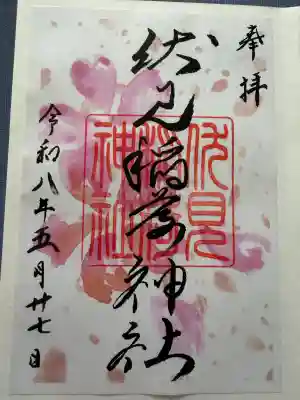 奉拝
伏見稲荷神社
伏見稲荷神社
令和八年五月廿七日